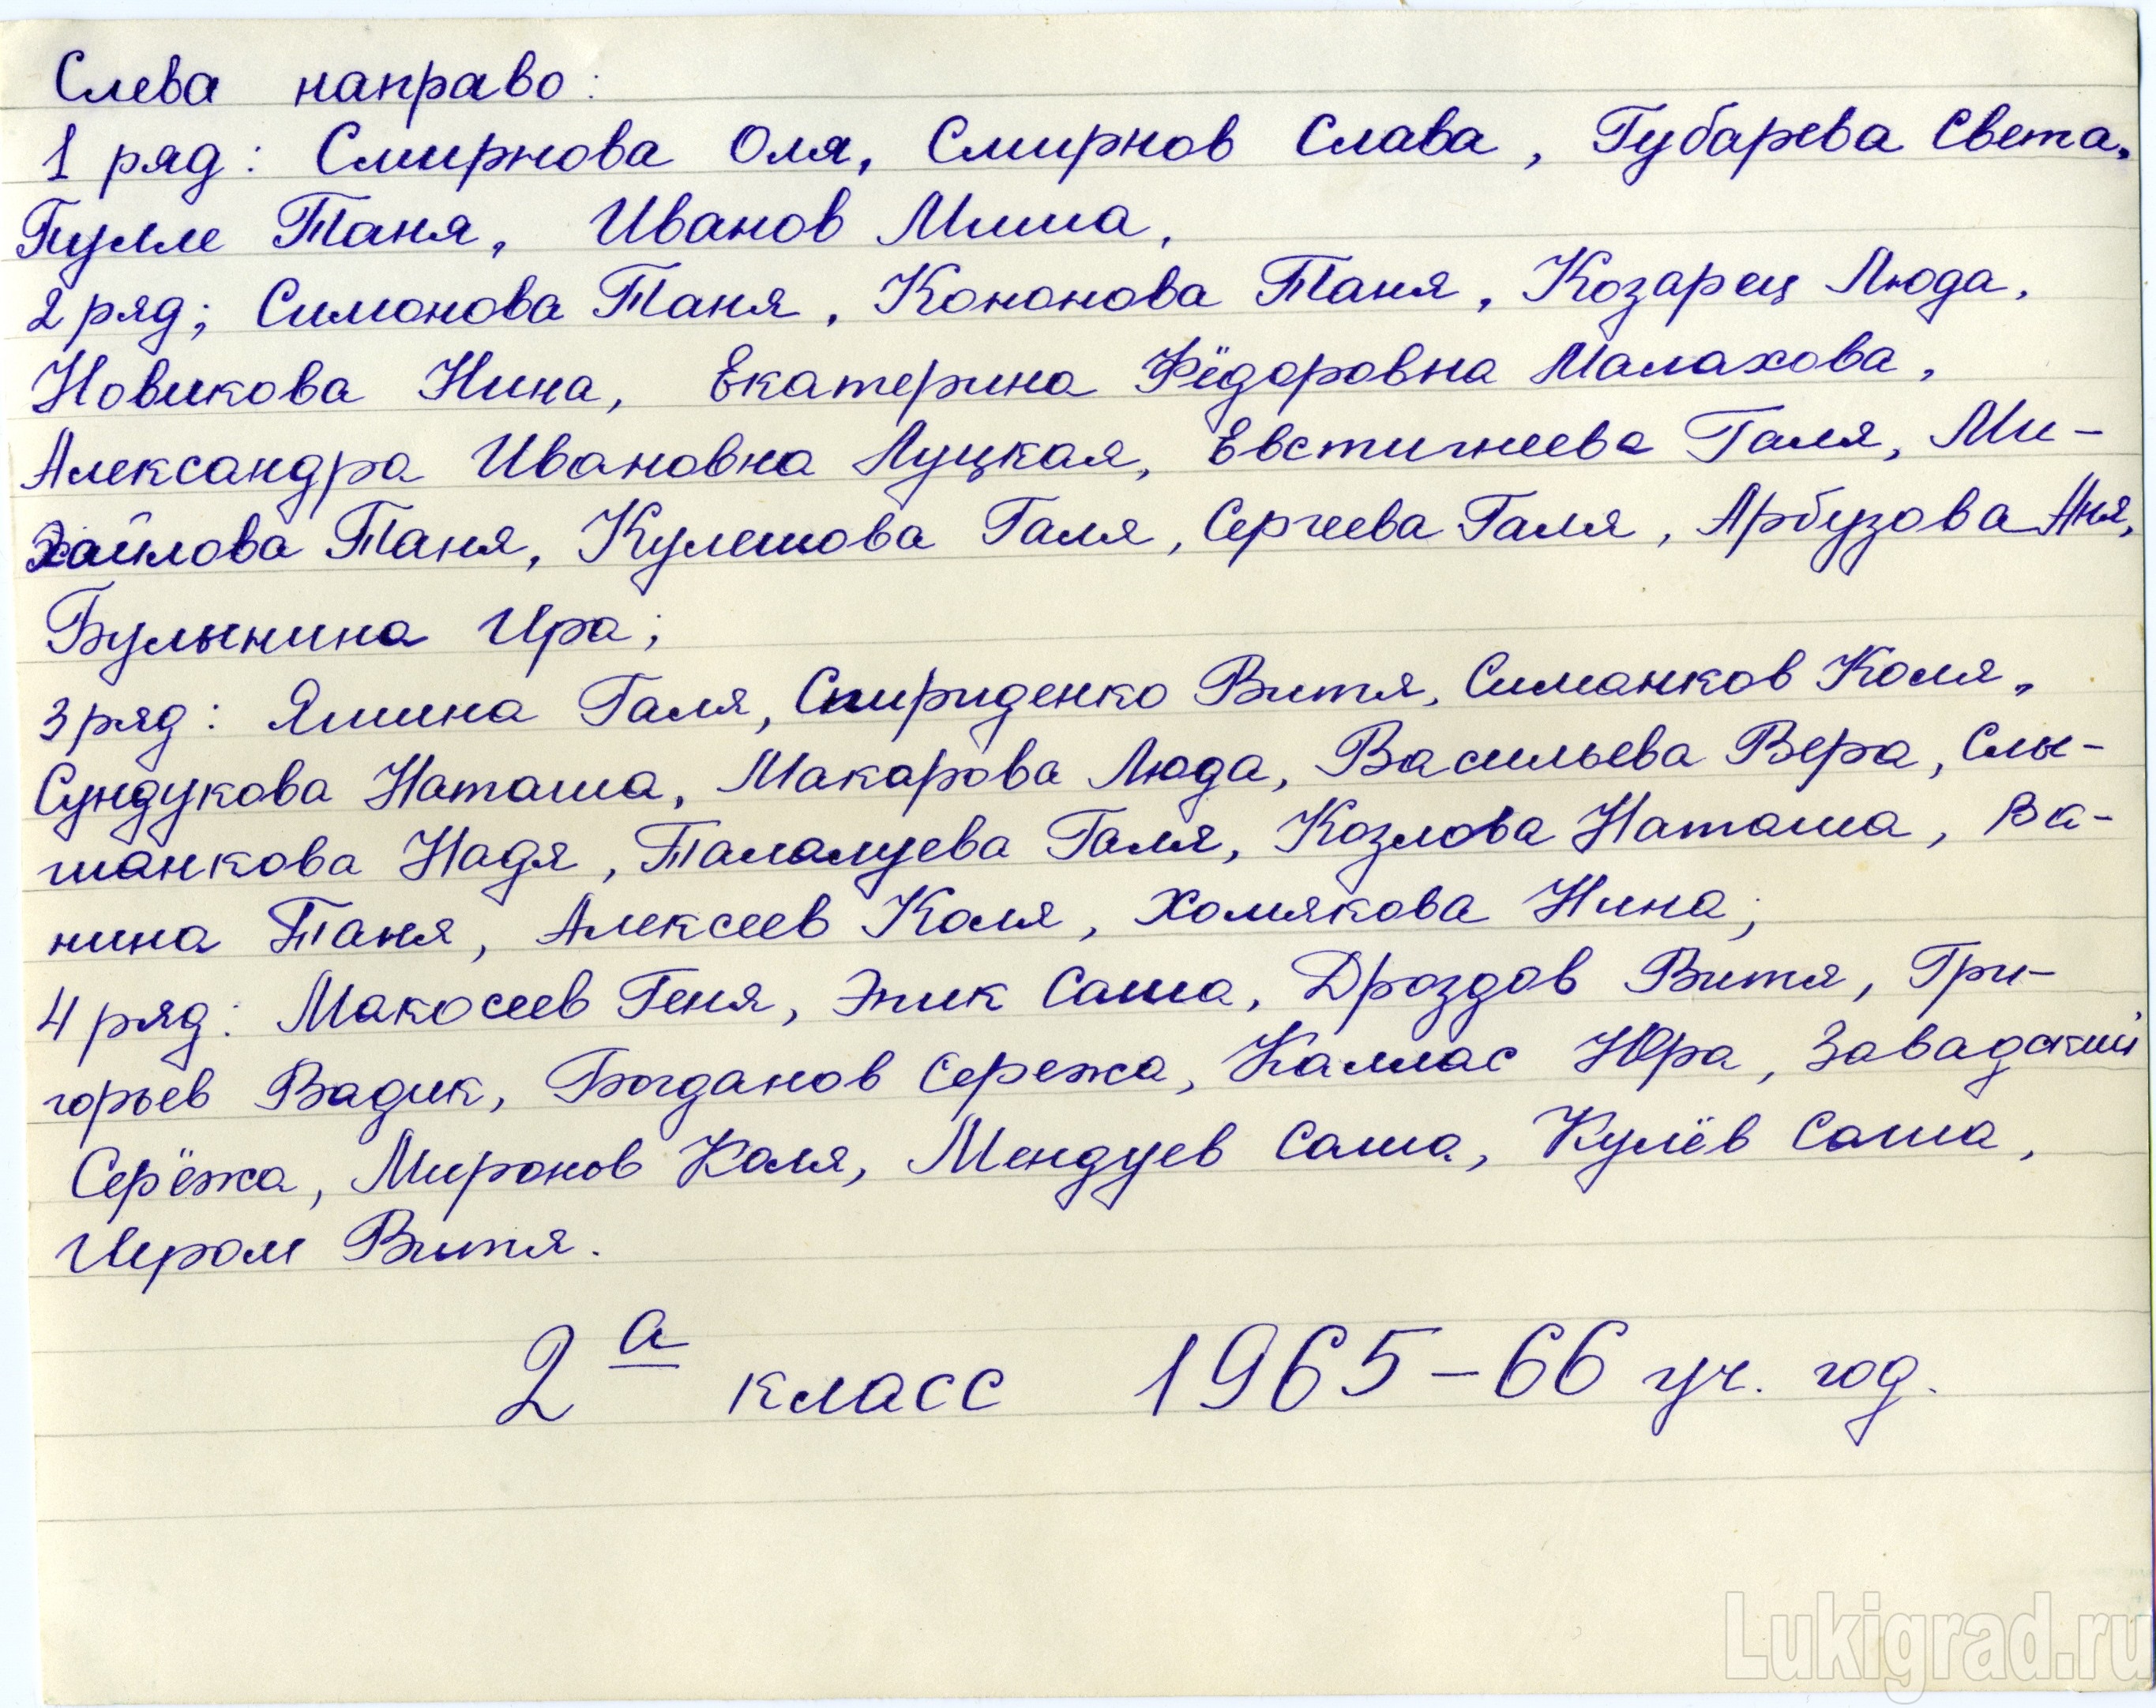 Слева направо:
1 ряд: Смирнова Оля, Смирнов Слава, Губарева Света,
Пулле Таня, Иванов Миша,
2 ряд; Симонова Таня, Кононова Таня, Козарец Люда,
Новикова Нина, Екатерина Фёдоровна Малахова,
Александра Ивановна Луцкая, Евстигнеева Галя, Ми-
хайлова Таня, Кулешова Галя, Сергеева Галя, Арбузова Аня,
Булынина Ира;
3 ряд: Яшина Галя, Спириденко Витя, Симанков Коля,
Сундукова Наташа, Макарова Люда, Васильева Вера, Слы-
шанкова Надя, Талалуева Галя, Козлова Наташа, Ва-
нина Таня, Алексеев Коля, Хомякова Нина;
4 ряд: Макосеев Геня, Эпик Саша, Дроздов Витя, Гри-
горьев Вадик, Богданов Сережа, Каллас Юра, Завадский
Серёжа, Миронов Коля, Мендуев Саша, Кулёв Саша,
Витя.
2а класс 1965-66 уч. год.
Lukigrad.ru